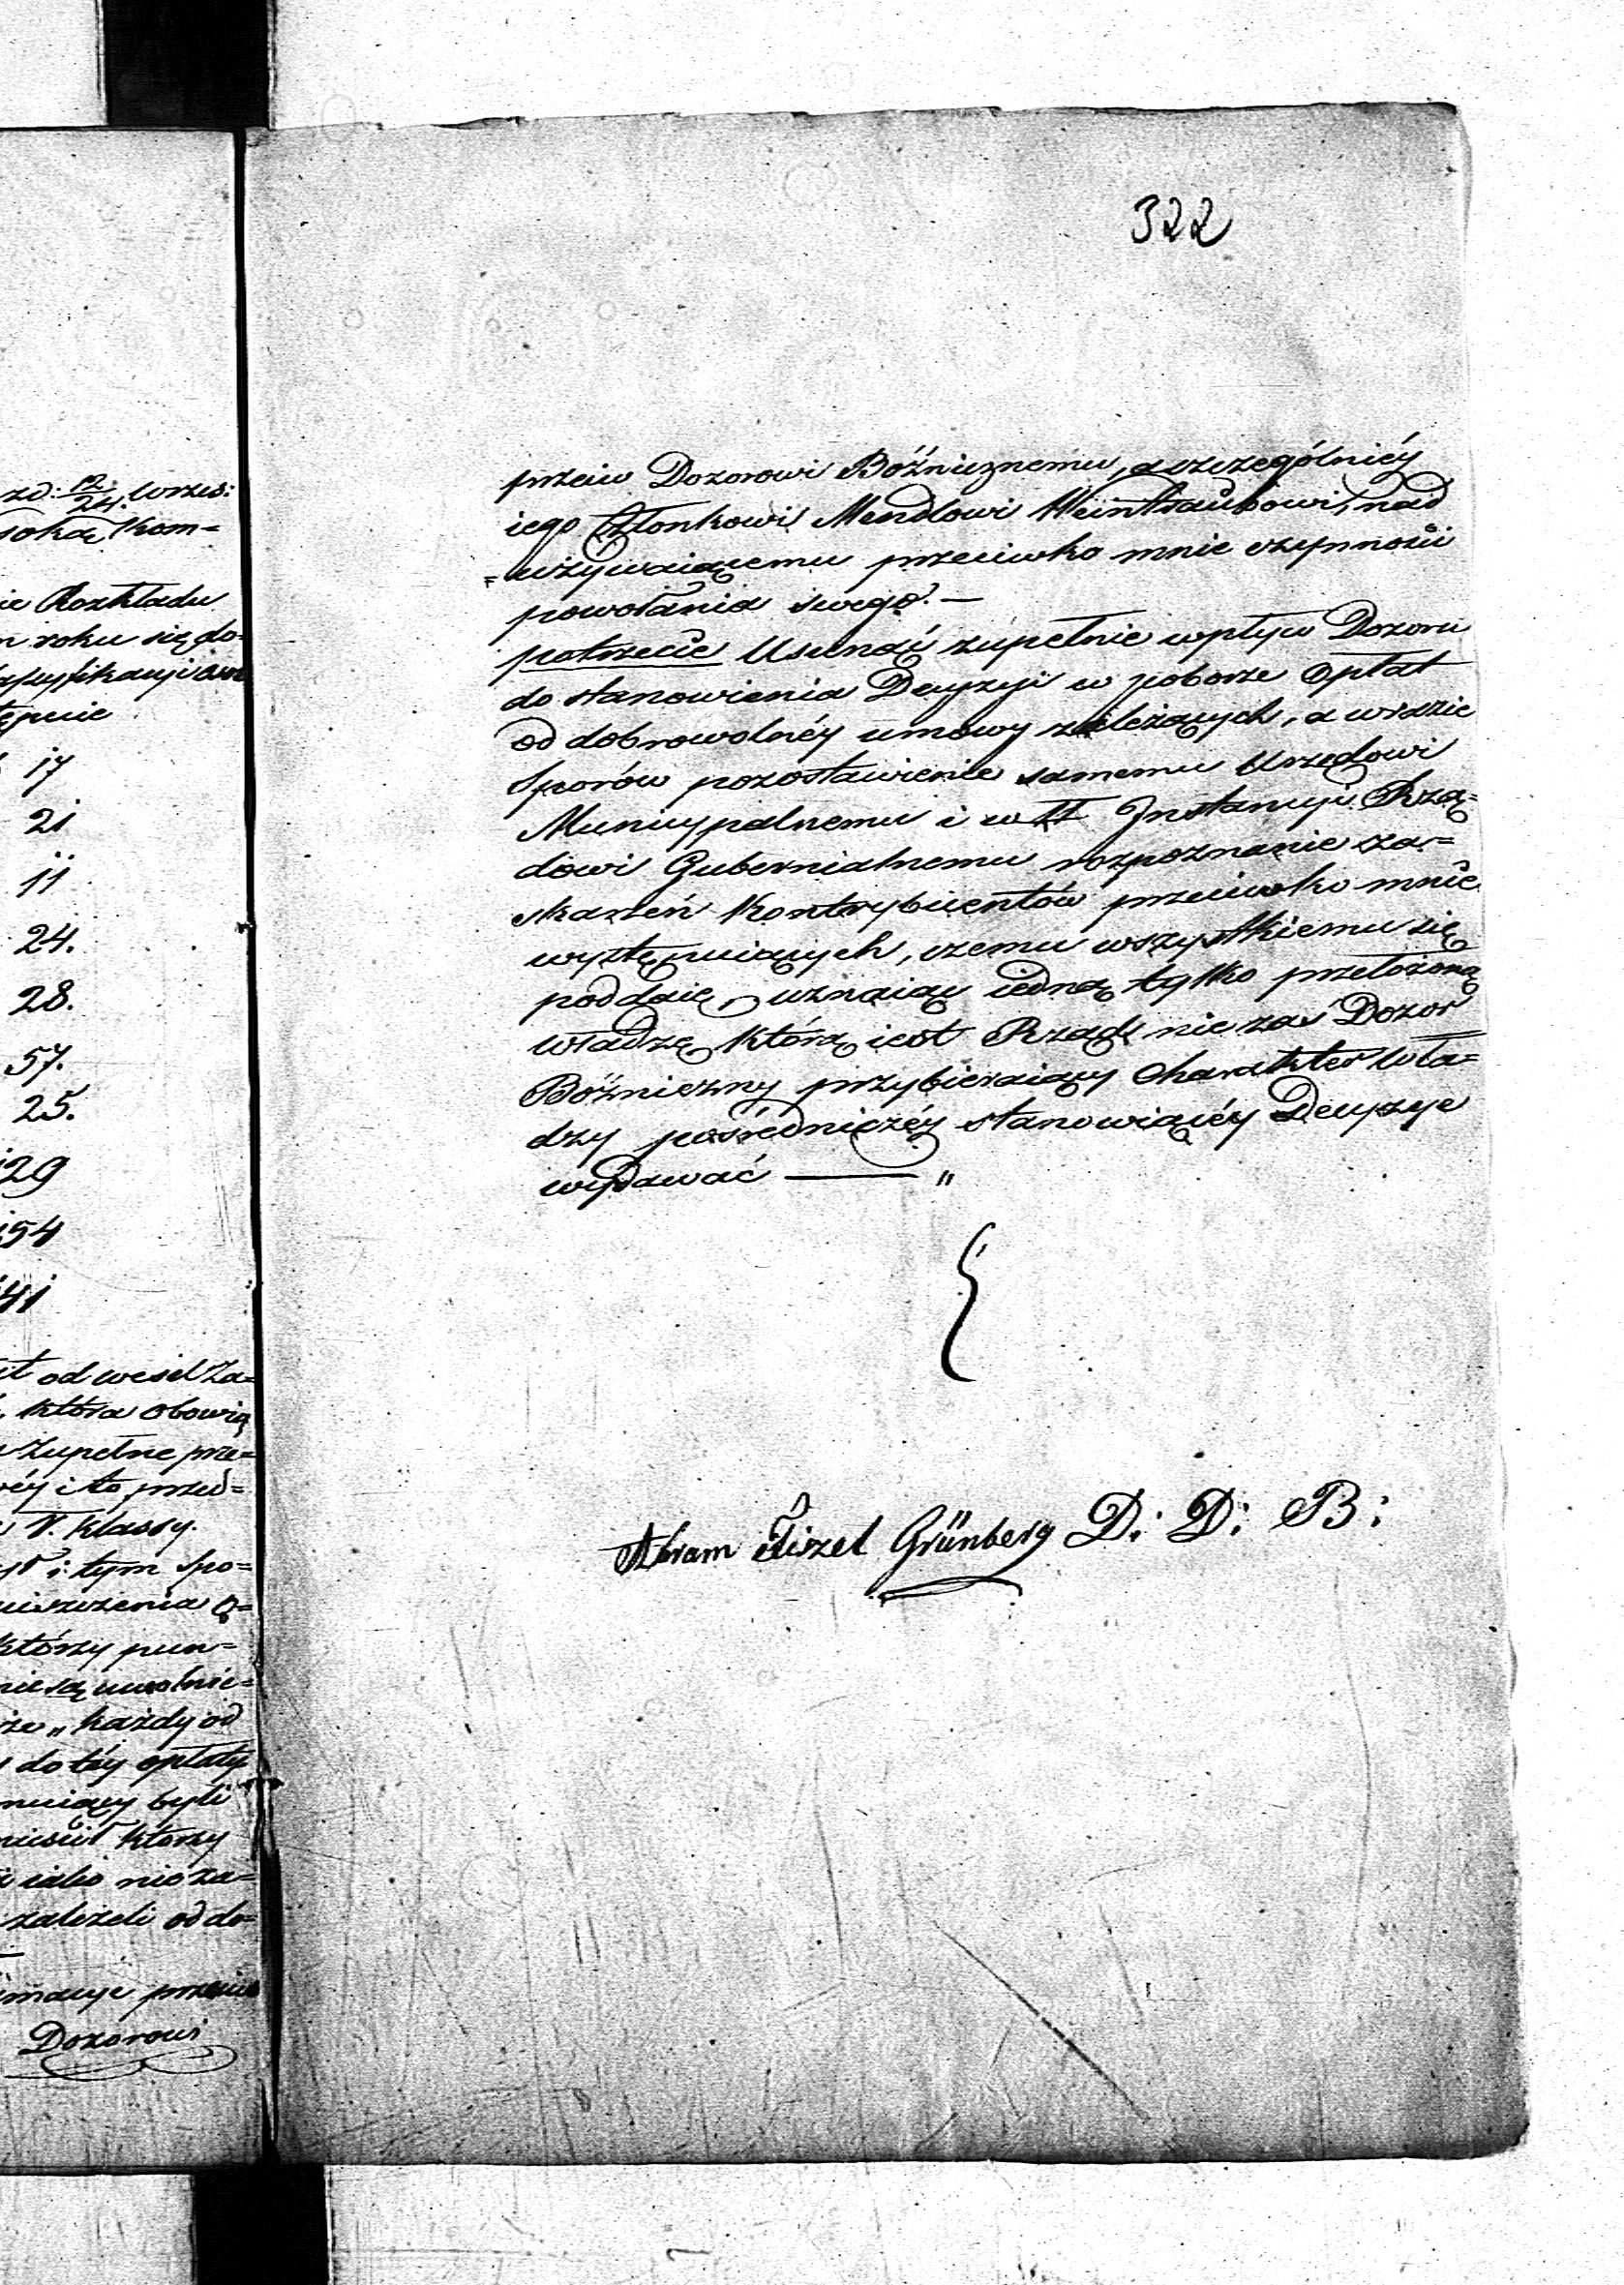 322
przeciw Dozorowi Bóźnicznemu, a szczególniéy
iego Członkowi Mendlowi Weintraubowi, nad
=używaiącemu przeciwko mnie czynności
powołania swego. —
potrzecie Usunąć zupełnie wpływ Dozoru
do stanowienia Decyzyi w poborze Opłat
od dobrowolnéy umowy zależących, a w razie
Sporów pozostawienie samemu Urzędowi
Municypalnemu i w II Instancyi Rzą=
dowi Gubernialnemu rozpoznanie za=
skarżeń Kontrybuentów przeciwko mnie
występuiących, czemu wszystkiemu się
poddaię, uznaiąc iedną tylko przełożoną
władzę, którą iest Rząd, nie zaś Dozor
Bóźniczny przybieraiący Charakter wła=
dzy pośredniczéy stanowiącéy Decyzye
wydawać —— "
Abram Fiszel Grünberg D: D: B:
zd: 12/24. wrześ:
Kom=
ie Rozkładu
roku się do=
17
21
11
24.
28.
57.
25.
29
54
41
od wesel za=
która obowią
Zupełne prze=
i to przed=
V. Klassy.
i tym spo=
którzy pun=
nie są uwolnie=
że „ każdy od
do téy opłaty
byli
którzy
iako nie za=
zależeli od do=
Dozorowi